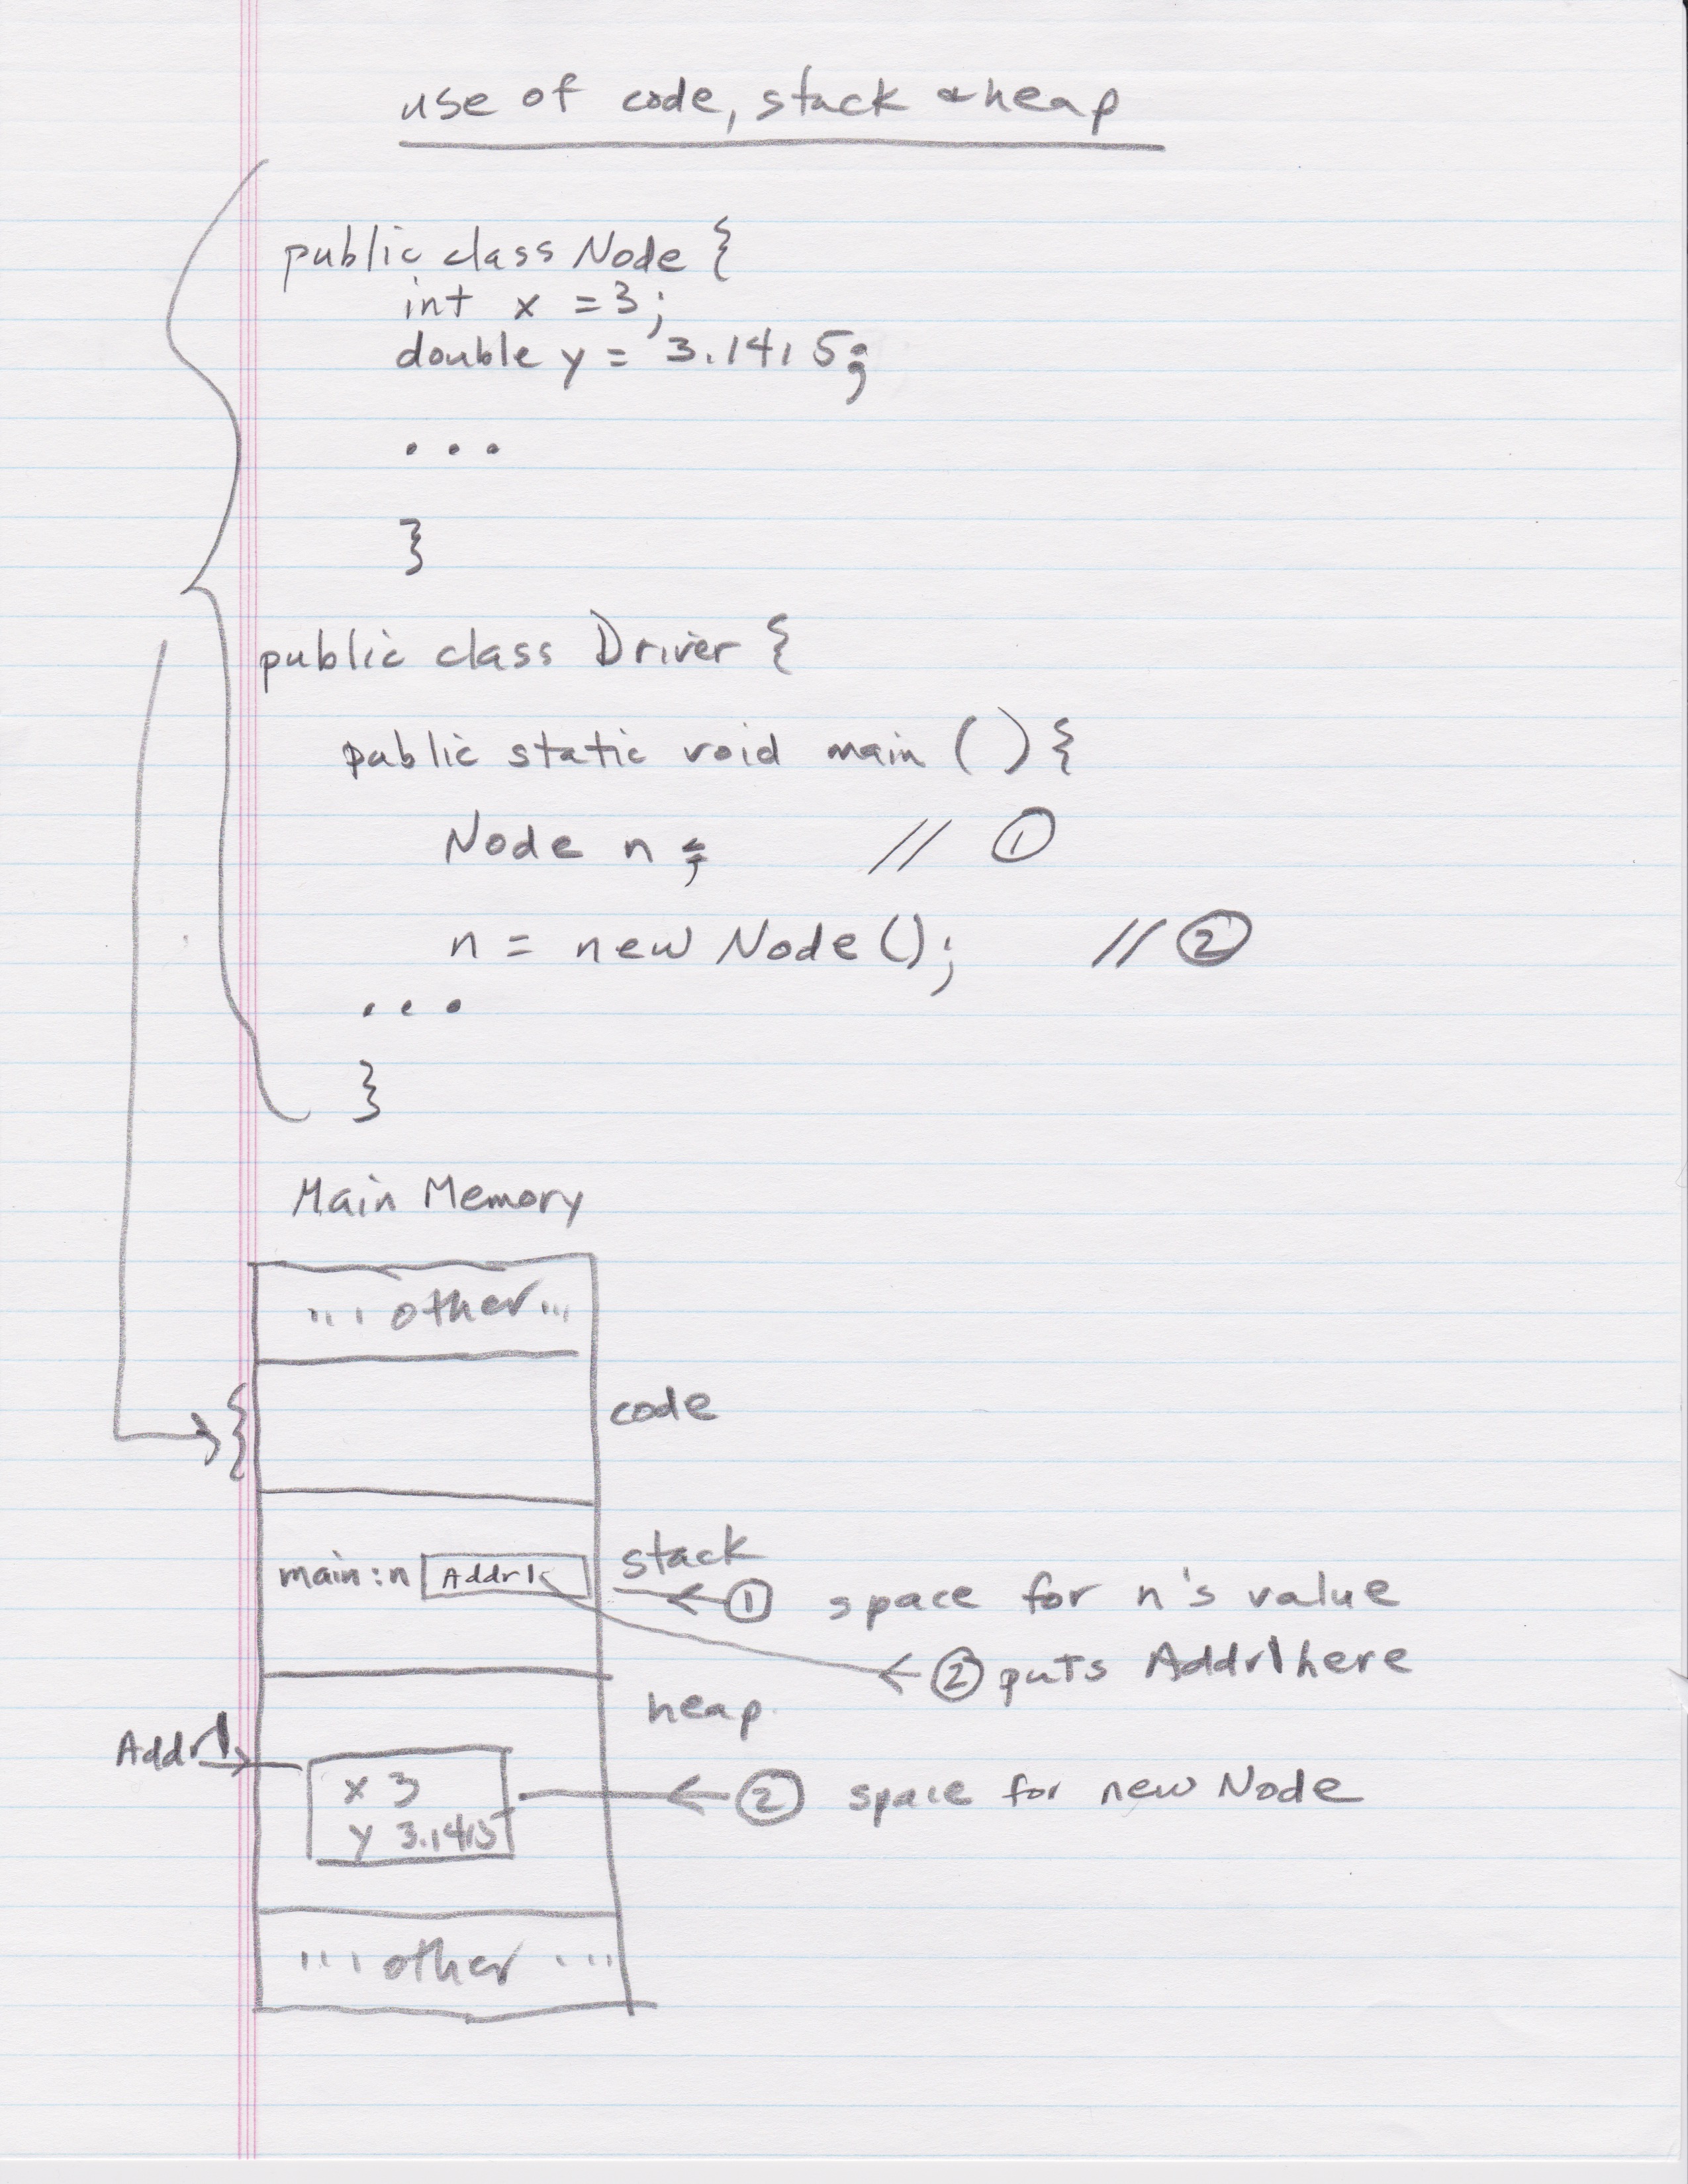 use of code, stack & heap
public class Node {
int x = 3;
double y = 3.1415;
...
}
public class Driver {
public static void main () {
Node n ; // ①
n = new Node(); // ②
...
}
Main Memory
... other ...
code
stack
main:n Addr1 ① space for n's value
② puts Addr1 here
heap
Addr1
x 3 ② space for new Node
y 3.1415
... other ...